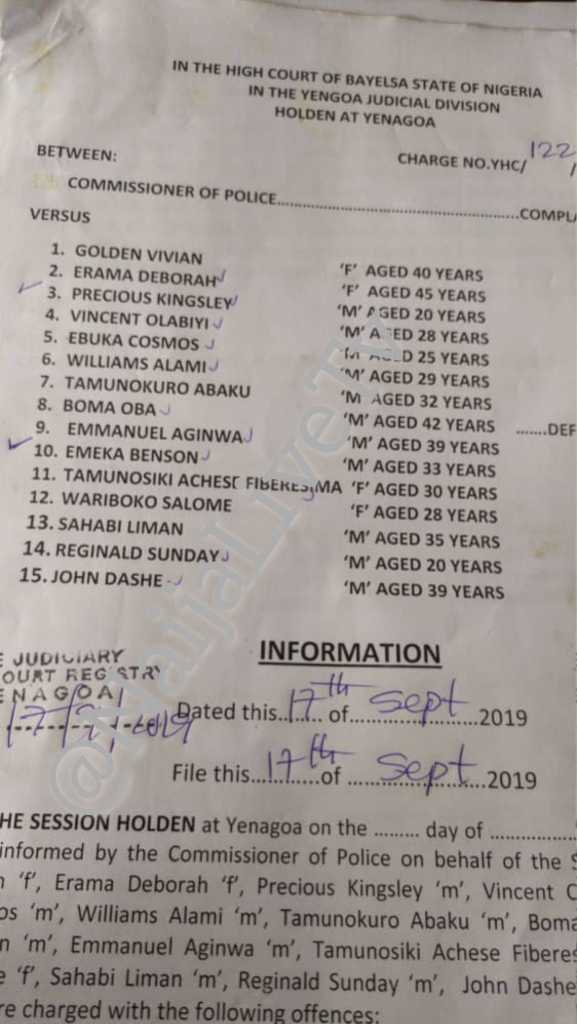 IN THE HIGH COURT OF BAYELSA STATE OF NIGERIA
IN THE YENGOA JUDICIAL DIVISION
HOLDEN AT YENAGOA
BETWEEN:
CHARGE NO.YHC/ 122 /
COMMISSIONER OF POLICE..........COMPLA
VERSUS
1. GOLDEN VIVIAN 'F' AGED 40 YEARS
2. ERAMA DEBORAH 'F' AGED 45 YEARS
3. PRECIOUS KINGSLEY 'M' AGED 20 YEARS
4. VINCENT OLABIYI 'M' AGED 28 YEARS
5. EBUKA COSMOS 'M' AGED 25 YEARS
6. WILLIAMS ALAMI 'M' AGED 29 YEARS
7. TAMUNOKURO ABAKU 'M AGED 32 YEARS
8. BOMA OBA 'M' AGED 42 YEARS .......DEF
9. EMMANUEL AGINWA 'M' AGED 39 YEARS
10. EMEKA BENSON 'M' AGED 33 YEARS
11. TAMUNOSIKI ACHESE FIBERESIMA 'F' AGED 30 YEARS
12. WARIBOKO SALOME 'F' AGED 28 YEARS
13. SAHABI LIMAN 'M' AGED 35 YEARS
14. REGINALD SUNDAY 'M' AGED 20 YEARS
15. JOHN DASHE 'M' AGED 39 YEARS
INFORMATION
E JUDICIARY
OURT REGISTRY
ENAGOA
Dated this..17th.. of....Sept....2019
File this...17th...of ....Sept....2019
HE SESSION HOLDEN at Yenagoa on the ......... day of ...............
informed by the Commissioner of Police on behalf of the S
n 'f', Erama Deborah 'f', Precious Kingsley 'm', Vincent O
os 'm', Williams Alami 'm', Tamunokuro Abaku 'm', Boma
n 'm', Emmanuel Aginwa 'm', Tamunosiki Achese Fiberes
e 'f', Sahabi Liman 'm', Reginald Sunday 'm', John Dashe
re charged with the following offences:
@NaijaLiveTv